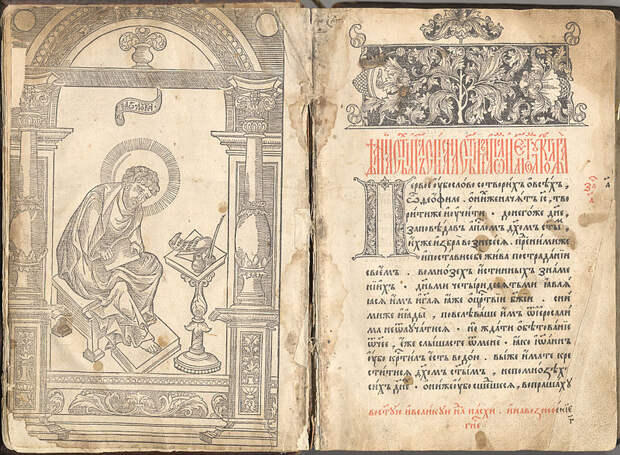 лꙋка
Первое ᲂубо слово сотворихъ ѡ всѣхъ,
ѽ ѳеофиле. ѡ нихже начатъ іс҃, тво
рити же и ᲂучити. донегоже дн҃е,
заповѣдавъ апⷭ҇лом дх҃омъ ст҃ы
ихже избра вознесеся. пред ними же
и постави себе жива по страданїи
своемъ. во мнозехъ истинныхъ знаме
нїихъ. дньми четыридесятьми ꙗвлѧ
ѧсѧ имъ, и гл҃ѧ ꙗже ѡ црⷭ҇твїи бж҃їи. с ни
ми же и ꙗдыи, повелѣваше имъ ѿ иерⷭ҇али
ма не ѿлꙋчатисѧ. но ждати ѡбѣтованїе
ѿчее, еже слышасте ѿ мене. ꙗко иѡаннъ
ᲂубо крⷭ҇тилъ есть водою. вы же имате кре
ститисѧ дх҃омъ ст҃ымъ, не по мнозѣхъ
сихъ дн҃е. ѡни же ᲂубо сшедшесѧ, вопрашахꙋ
в ст҃ꙋю и великꙋю нлⷣю пасхи. и на вознесенїе
гн҃е